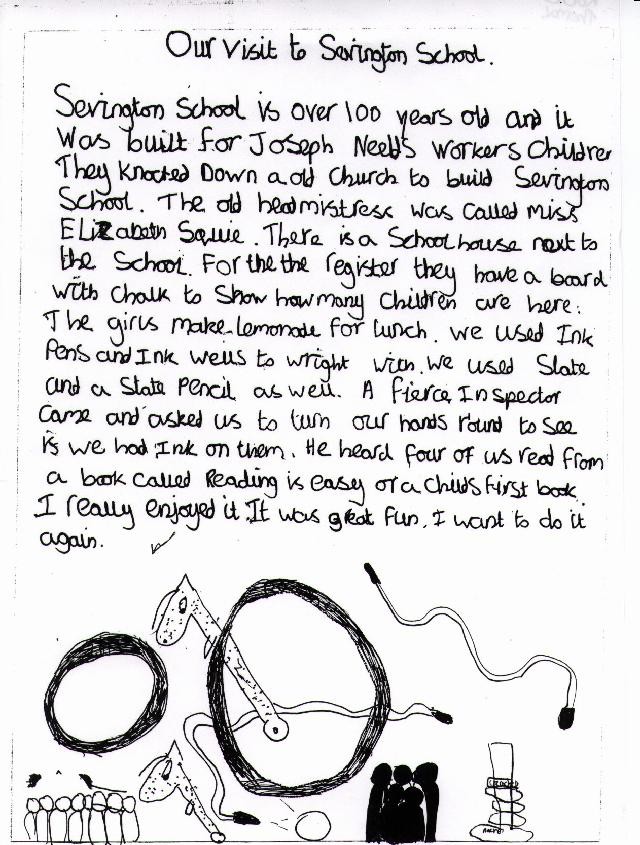 Our Visit to Sevington School.
Sevington School is over 100 years old and it
Was built for Joseph Neelds workers Children
They knocked Down a old Church to build Sevington
School. The old headmistress was called Miss
Elizabeth Squie. There is a School house next to
the School. For the the register they have a board
with chalk to Show how many Children are here.
The girls make lemonade for lunch. we used Ink
Pens and Ink wells to wright with. we used Slate
and a Slate Pencil as well. A fierce Inspector
Came and asked us to turn our hands round to See
is we had Ink on them. He heard four of us read from
a book called Reading is easy or a Childs first book.
I really enjoyed it. It was great fun. I want to do it
again.